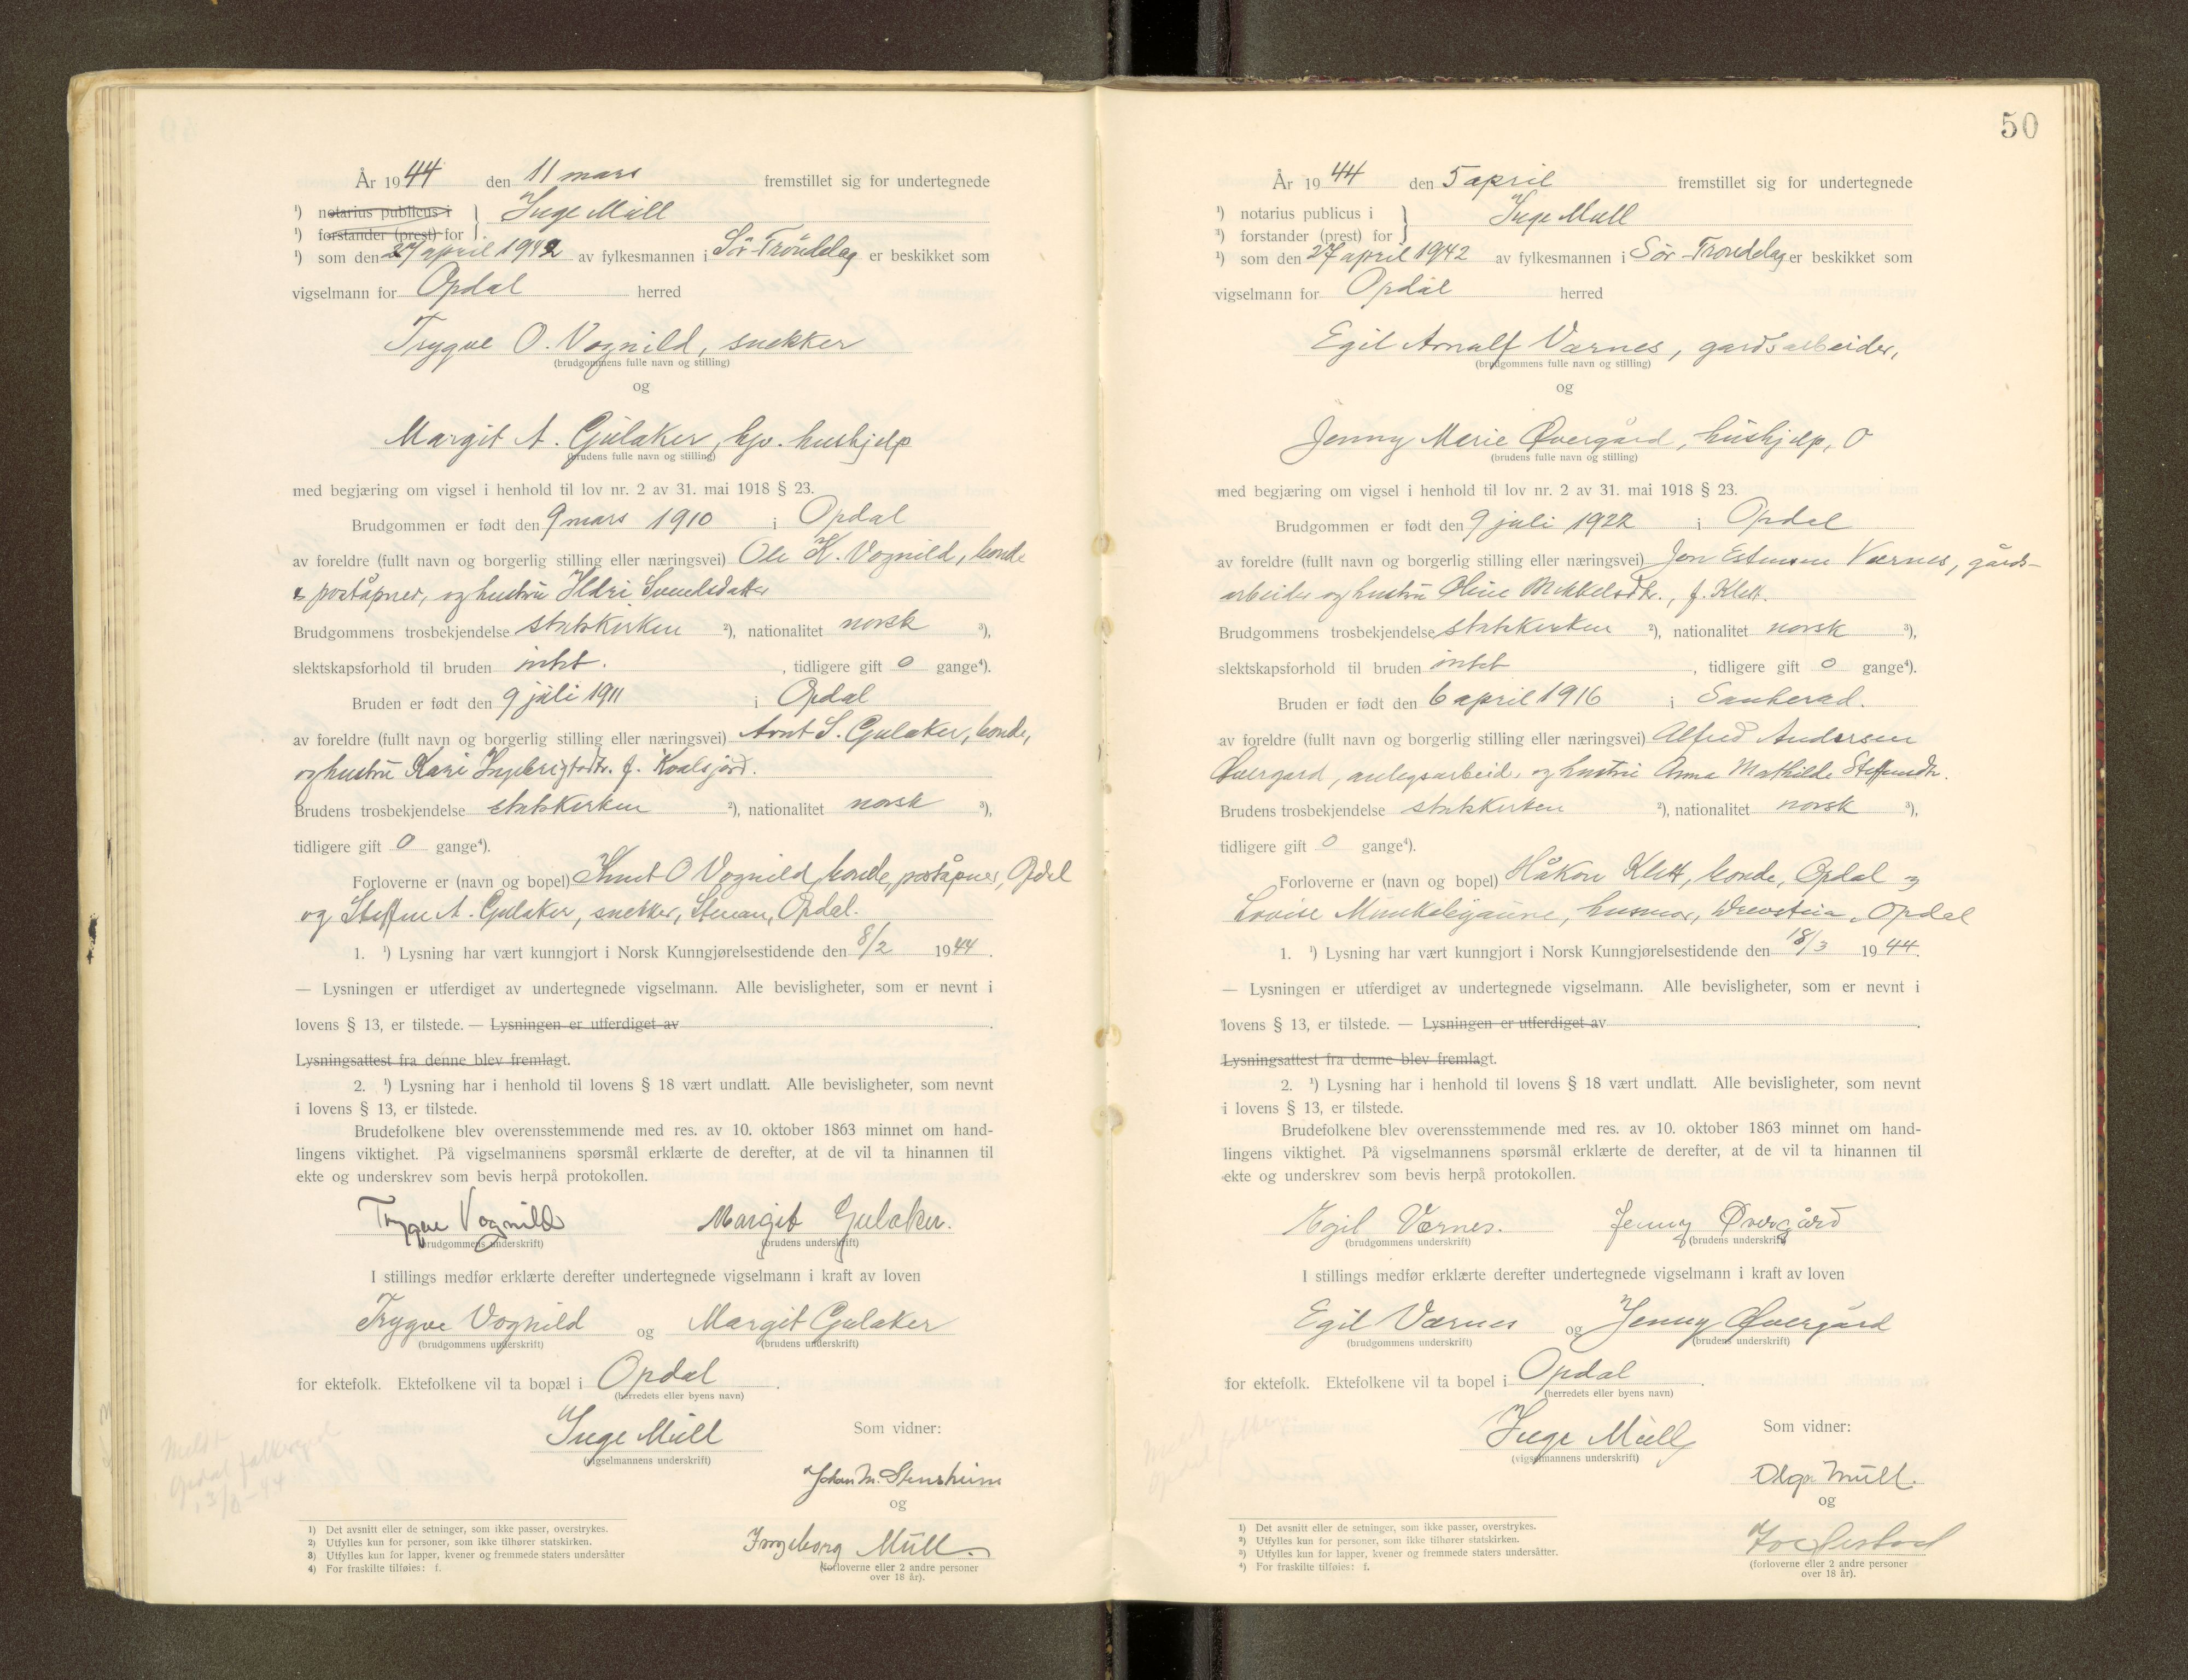 År 1944 den 11 mars fremstillet sig for undertegnede
¹) notarius publicus i
Inge Mull
¹) forstander (prest) for
¹) som den 27 april 1942 av fylkesmannen i Sör-Tröndelag er beskikket som
vigselmann for Opdal herred
Trygve O. Vognild, snekker
(brudgommens fulle navn og stilling)
og
Margit A. Gulaker, hjv. hushjelp
(brudens fulle navn og stilling)
med begjæring om vigsel i henhold til lov nr. 2 av 31. mai 1918 § 23.
Brudgommen er født den 9 mars 1910 i Opdal
av foreldre (fullt navn og borgerlig stilling eller næringsvei) Ole K. Vognild, bonde
& poståpner, og hustru Ildri Svendsdatter
Brudgommens trosbekjendelse statskirken ²), nationalitet norsk ³),
slektskapsforhold til bruden intet. , tidligere gift 0 gange⁴).
Bruden er født den 9 juli 1911 i Opdal
av foreldre (fullt navn og borgerlig stilling eller næringsvei) Arnt S. Gulaker, bonde,
og hustru Kari Ingebrigtsdtr. f.
Brudens trosbekjendelse statskirken ²), nationalitet norsk ³),
tidligere gift 0 gange⁴).
Forloverne er (navn og bopel) Knut O Vognild, bonde, poståpner, Opdal
og Steffen A. Gulaker, snekker, Stenan, Opdal.
1. ¹) Lysning har vært kunngjort i Norsk Kunngjørelsestidende den 8/2 1944.
— Lysningen er utferdiget av undertegnede vigselmann. Alle bevisligheter, som er nevnt i
lovens § 13, er tilstede. — Lysningen er utferdiget av
Lysningsattest fra denne blev fremlagt.
2. ¹) Lysning har i henhold til lovens § 18 vært undlatt. Alle bevisligheter, som nevnt
i lovens § 13, er tilstede.
Brudefolkene blev overensstemmende med res. av 10. oktober 1863 minnet om hand-
lingens viktighet. På vigselmannens spørsmål erklærte de derefter, at de vil ta hinannen til
ekte og underskrev som bevis herpå protokollen.
Trygve Vognild Margit Gulaker.
(brudgommens underskrift) (brudens underskrift)
I stillings medfør erklærte derefter undertegnede vigselmann i kraft av loven
Trygve Vognild og Margit Gulaker
(brudgommens underskrift) (brudens underskrift)
for ektefolk. Ektefolkene vil ta bopæl i Opdal.
(herredets eller byens navn)
Inge Mull Som vidner:
(vigselmannens underskrift)
Johan M. Stensheim
og
Ingeborg Mull.
(forloverne eller 2 andre personer
over 18 år).
Meldt
Opdal folkereg
13/4-44
1) Det avsnitt eller de setninger, som ikke passer, overstrykes.
2) Utfylles kun for personer, som ikke tilhører statskirken.
3) Utfylles kun for lapper, kvener og fremmede staters undersåtter
4) For fraskilte tilføies: f.
50
År 1944 den 5 april fremstillet sig for undertegnede
¹) notarius publicus i
Inge Mull
¹) forstander (prest) for
¹) som den 27 april 1942 av fylkesmannen i Sör-Trondelag er beskikket som
vigselmann for Opdal herred
Egil Arnulf Værnes, gardsarbeider,
(brudgommens fulle navn og stilling)
og
Jenny Marie Øvergård, hushjelp, O
(brudens fulle navn og stilling)
med begjæring om vigsel i henhold til lov nr. 2 av 31. mai 1918 § 23.
Brudgommen er født den 9 juli 1922 i Opdal
av foreldre (fullt navn og borgerlig stilling eller næringsvei) Jon Estensen Værnes, gårds-
arbeider og hustru Oline Mikkelsdtr., f. Klett.
Brudgommens trosbekjendelse statskirken ²), nationalitet norsk ³),
slektskapsforhold til bruden intet , tidligere gift 0 gange⁴).
Bruden er født den 6 april 1916 i Sauherad.
av foreldre (fullt navn og borgerlig stilling eller næringsvei) Alfred Andersen
Øvergard, anlegsarbeid. og hustru Anna Mathilde Steffensdtr.
Brudens trosbekjendelse statskirken ²), nationalitet norsk ³),
tidligere gift 0 gange⁴).
Forloverne er (navn og bopel) Håkon Klett, bonde, Opdal og
Lovise Munkebygaune, husmor, Opdal
1. ¹) Lysning har vært kunngjort i Norsk Kunngjørelsestidende den 18/3 1944.
— Lysningen er utferdiget av undertegnede vigselmann. Alle bevisligheter, som er nevnt i
lovens § 13, er tilstede. — Lysningen er utferdiget av
Lysningsattest fra denne blev fremlagt.
2. ¹) Lysning har i henhold til lovens § 18 vært undlatt. Alle bevisligheter, som nevnt
i lovens § 13, er tilstede.
Brudefolkene blev overensstemmende med res. av 10. oktober 1863 minnet om hand-
lingens viktighet. På vigselmannens spørsmål erklærte de derefter, at de vil ta hinannen til
ekte og underskrev som bevis herpå protokollen.
Egil Værnes. Jenny Øvergård
(brudgommens underskrift) (brudens underskrift)
I stillings medfør erklærte derefter undertegnede vigselmann i kraft av loven
Egil Værnes og Jenny Øvergård
(brudgommens underskrift) (brudens underskrift)
for ektefolk. Ektefolkene vil ta bopel i Opdal.
(herredets eller byens navn)
Inge Mull Som vidner:
(vigselmannens underskrift)
Olga Mull.
og
(forloverne eller 2 andre personer
over 18 år).
Meldt
Opdal folkereg
¹) Det avsnitt eller de setninger, som ikke passer, overstrykes.
²) Utfylles kun for personer, som ikke tilhører statskirken.
³) Utfylles kun for lapper, kvener og fremmede staters undersåtter.
⁴) For fraskilte tilføies: f.